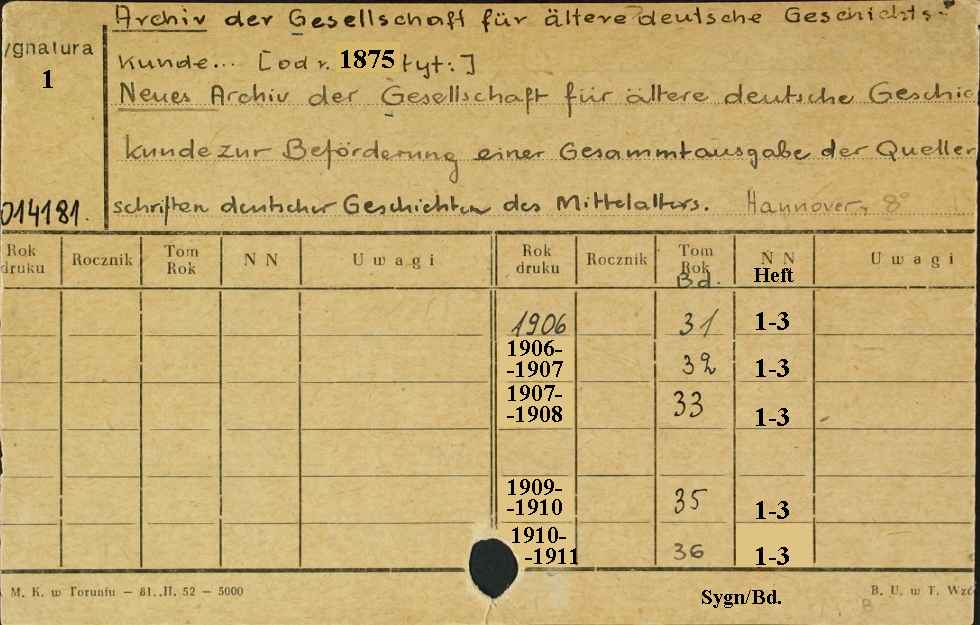 Archiv der Gesellschaft für ältere deutsche Geschichts-
ygnatura
kunde... [od r. 1875 tyt:]
1
Neues Archiv der Gesellschaft für ältere deutsche Geschic
kunde zur Beförderung einer Gesammtausgabe der Queller
014181. schriften deutscher Geschichten des Mittelalters. Hannover, 8°
Rok druku Rocznik Tom Rok N N Uwagi Rok druku Rocznik Tom Rok Bd. N N Heft Uwagi
1906 31 1-3
1906-
-1907 32 1-3
1907-
-1908 33 1-3
1909-
-1910 35 1-3
1910-
-1911 36 1-3
M. K. w Toruniu — 81. II. 52 — 5000
Sygn/Bd.
B. U. w T. Wzó